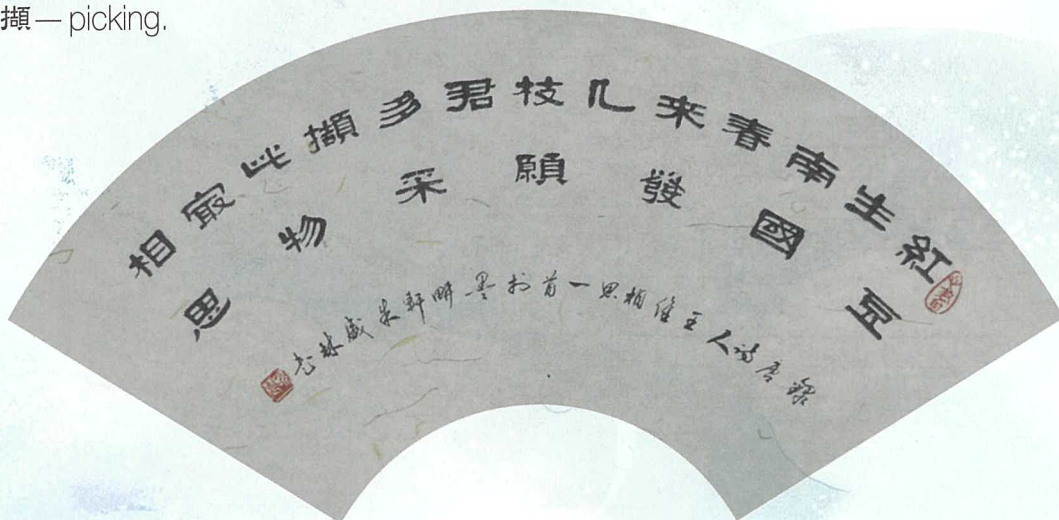 擷 — picking.
紅豆生南國春來發几枝願君多采擷此物冣相思
錄唐詩人王維相思一首於墨畊軒朱盛林